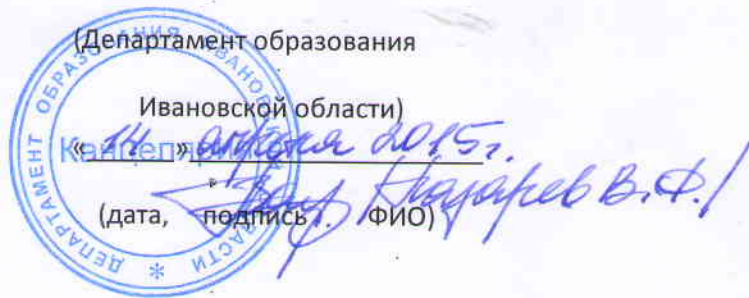 (Департамент образования
Ивановской области)
«14» апреля 2015г.
Лазарев В.Ф./
(дата, подпись, ФИО)
ДЕПАРТАМЕНТ ОБРАЗОВАНИЯ ИВАНОВСКОЙ ОБЛАСТИ *